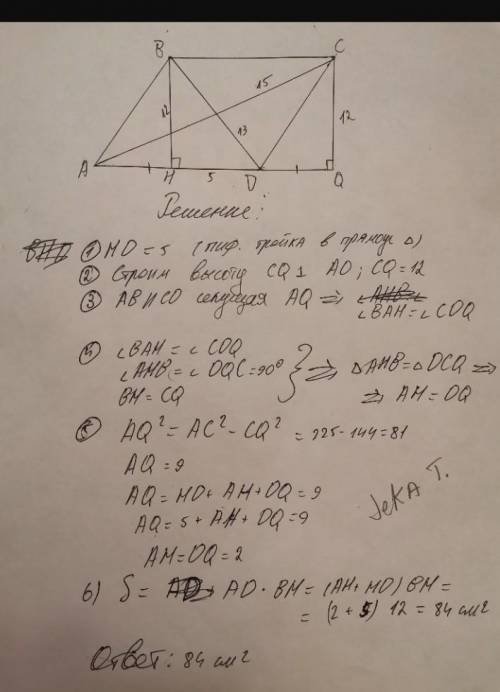 B C
15
12 13 12
A H 5 D Q
Решение:
① HD = 5 (пиф. тройка в прямоуг △)
② Строим высоту CQ ⊥ AD; CQ = 12
③ AB || CD секущая AQ ⇒
∠BAH = ∠CDQ
∠BAH = ∠CDQ
∠AHB = ∠DQC = 90° } ⇒ △AHB = △DCQ ⇒
BH = CQ ⇒ AH = DQ
⑤ AQ² = AC² - CQ² = 225 - 144 = 81
AQ = 9
AQ = HD + AH + DQ = 9
AQ = 5 + AH + DQ = 9
AH = DQ = 2
JeKA T.
6) S = AD · BH = (AH + HD) BH =
= (2 + 5) 12 = 84 см²
Ответ: 84 см²